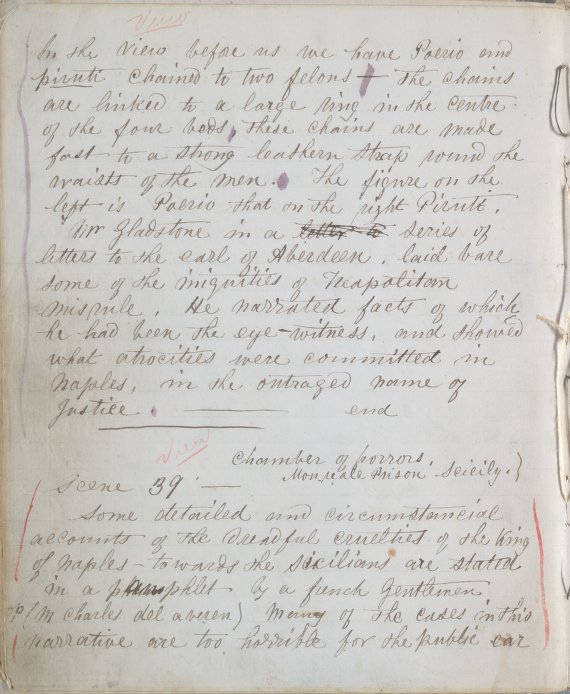 View
In the View before us we have Poerio and
piruti chained to two felons – The chains
are linked to a large ring in the centre
of the four beds, these chains are made
fast to a strong leathern strap round the
waists of the men. The figure on the
left is Poerio that on the right Piruti.
Mr Gladstone in a letter to series of
letters to the earl of Aberdeen, laid bare
some of the iniquities of Neapolitan
misrule, He narrated facts of which
he had been the eye-witness, and showed
what atrocities were committed in
Naples, in the outraged name of
Justice. end
View
Chamber of horrors.
Monreale Prison Scicily. }
Scene 39 –
Some detailed and circumstancial
accounts of the dreadful cruelties of the King
of Naples – towards the Sicilians are stated
in a pamphlet by a french Gentlemen
(M Charles del averen) Many of the cases in this
narrative are too horrible for the public ear